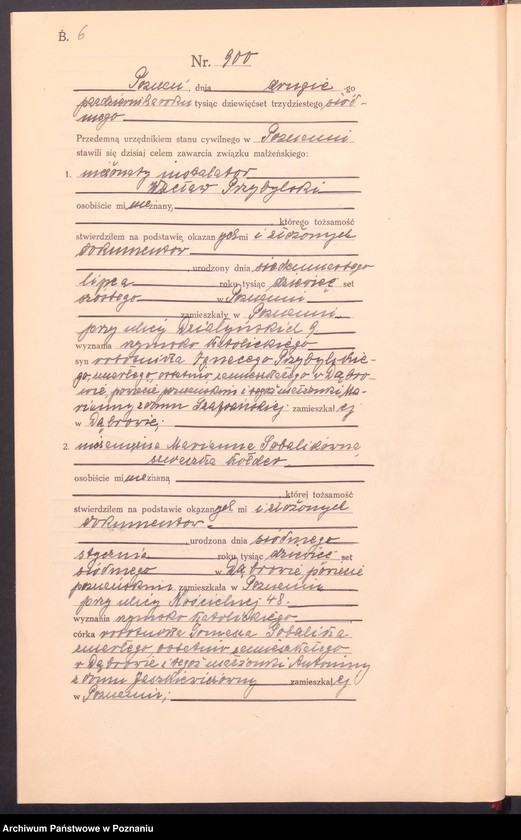 B. 6
Nr. 900
Poznań, dnia drugiego
października roku tysiąc dziewięćset trzydziestego siód-
mego
Przedemną urzędnikiem stanu cywilnego w Poznaniu
stawili się dzisiaj celem zawarcia związku małżeńskiego:
1. nieżonaty instalator
Wacław Przybylski
osobiście mi nieznany,
którego tożsamość
stwierdziłem na podstawie okazanych mi i złożonych
dokumentów
, urodzony dnia siedemnastego
lipca roku tysiąc dziewięć set
szóstego w Poznaniu
zamieszkały w Poznaniu
przy ulicy Działyńskich 9
wyznania rzymsko katolickiego
syn robotnika Ignacego Przybylskie-
go, umarłego, ostatnio zamieszkałego w Dąbro-
wie, powiecie poznańskim i tegoż małżonki Ma-
rianny z domu zamieszkałej
w Dąbrowie;
2. niezamężna Marianna Sobalikówna
szwaczka kołder
osobiście mi nieznaną
, której tożsamość
stwierdziłem na podstawie okazanych mi i złożonych
dokumentów
, urodzona dnia siódmego
stycznia roku tysiąc dziewięć set
siódmego w Dąbrowie powiecie
poznańskim zamieszkała w Poznaniu
przy ulicy Kościelnej 48.
wyznania rzymsko katolickiego
córka robotnika Tomasza Sobalika
umarłego ostatnio zamieszkałego
w Dąbrowie i tegoż małżonki Antoniny
z domu Jaszkiewiczówny zamieszkałej
w Poznaniu;
Archiwum Państwowe w Poznaniu